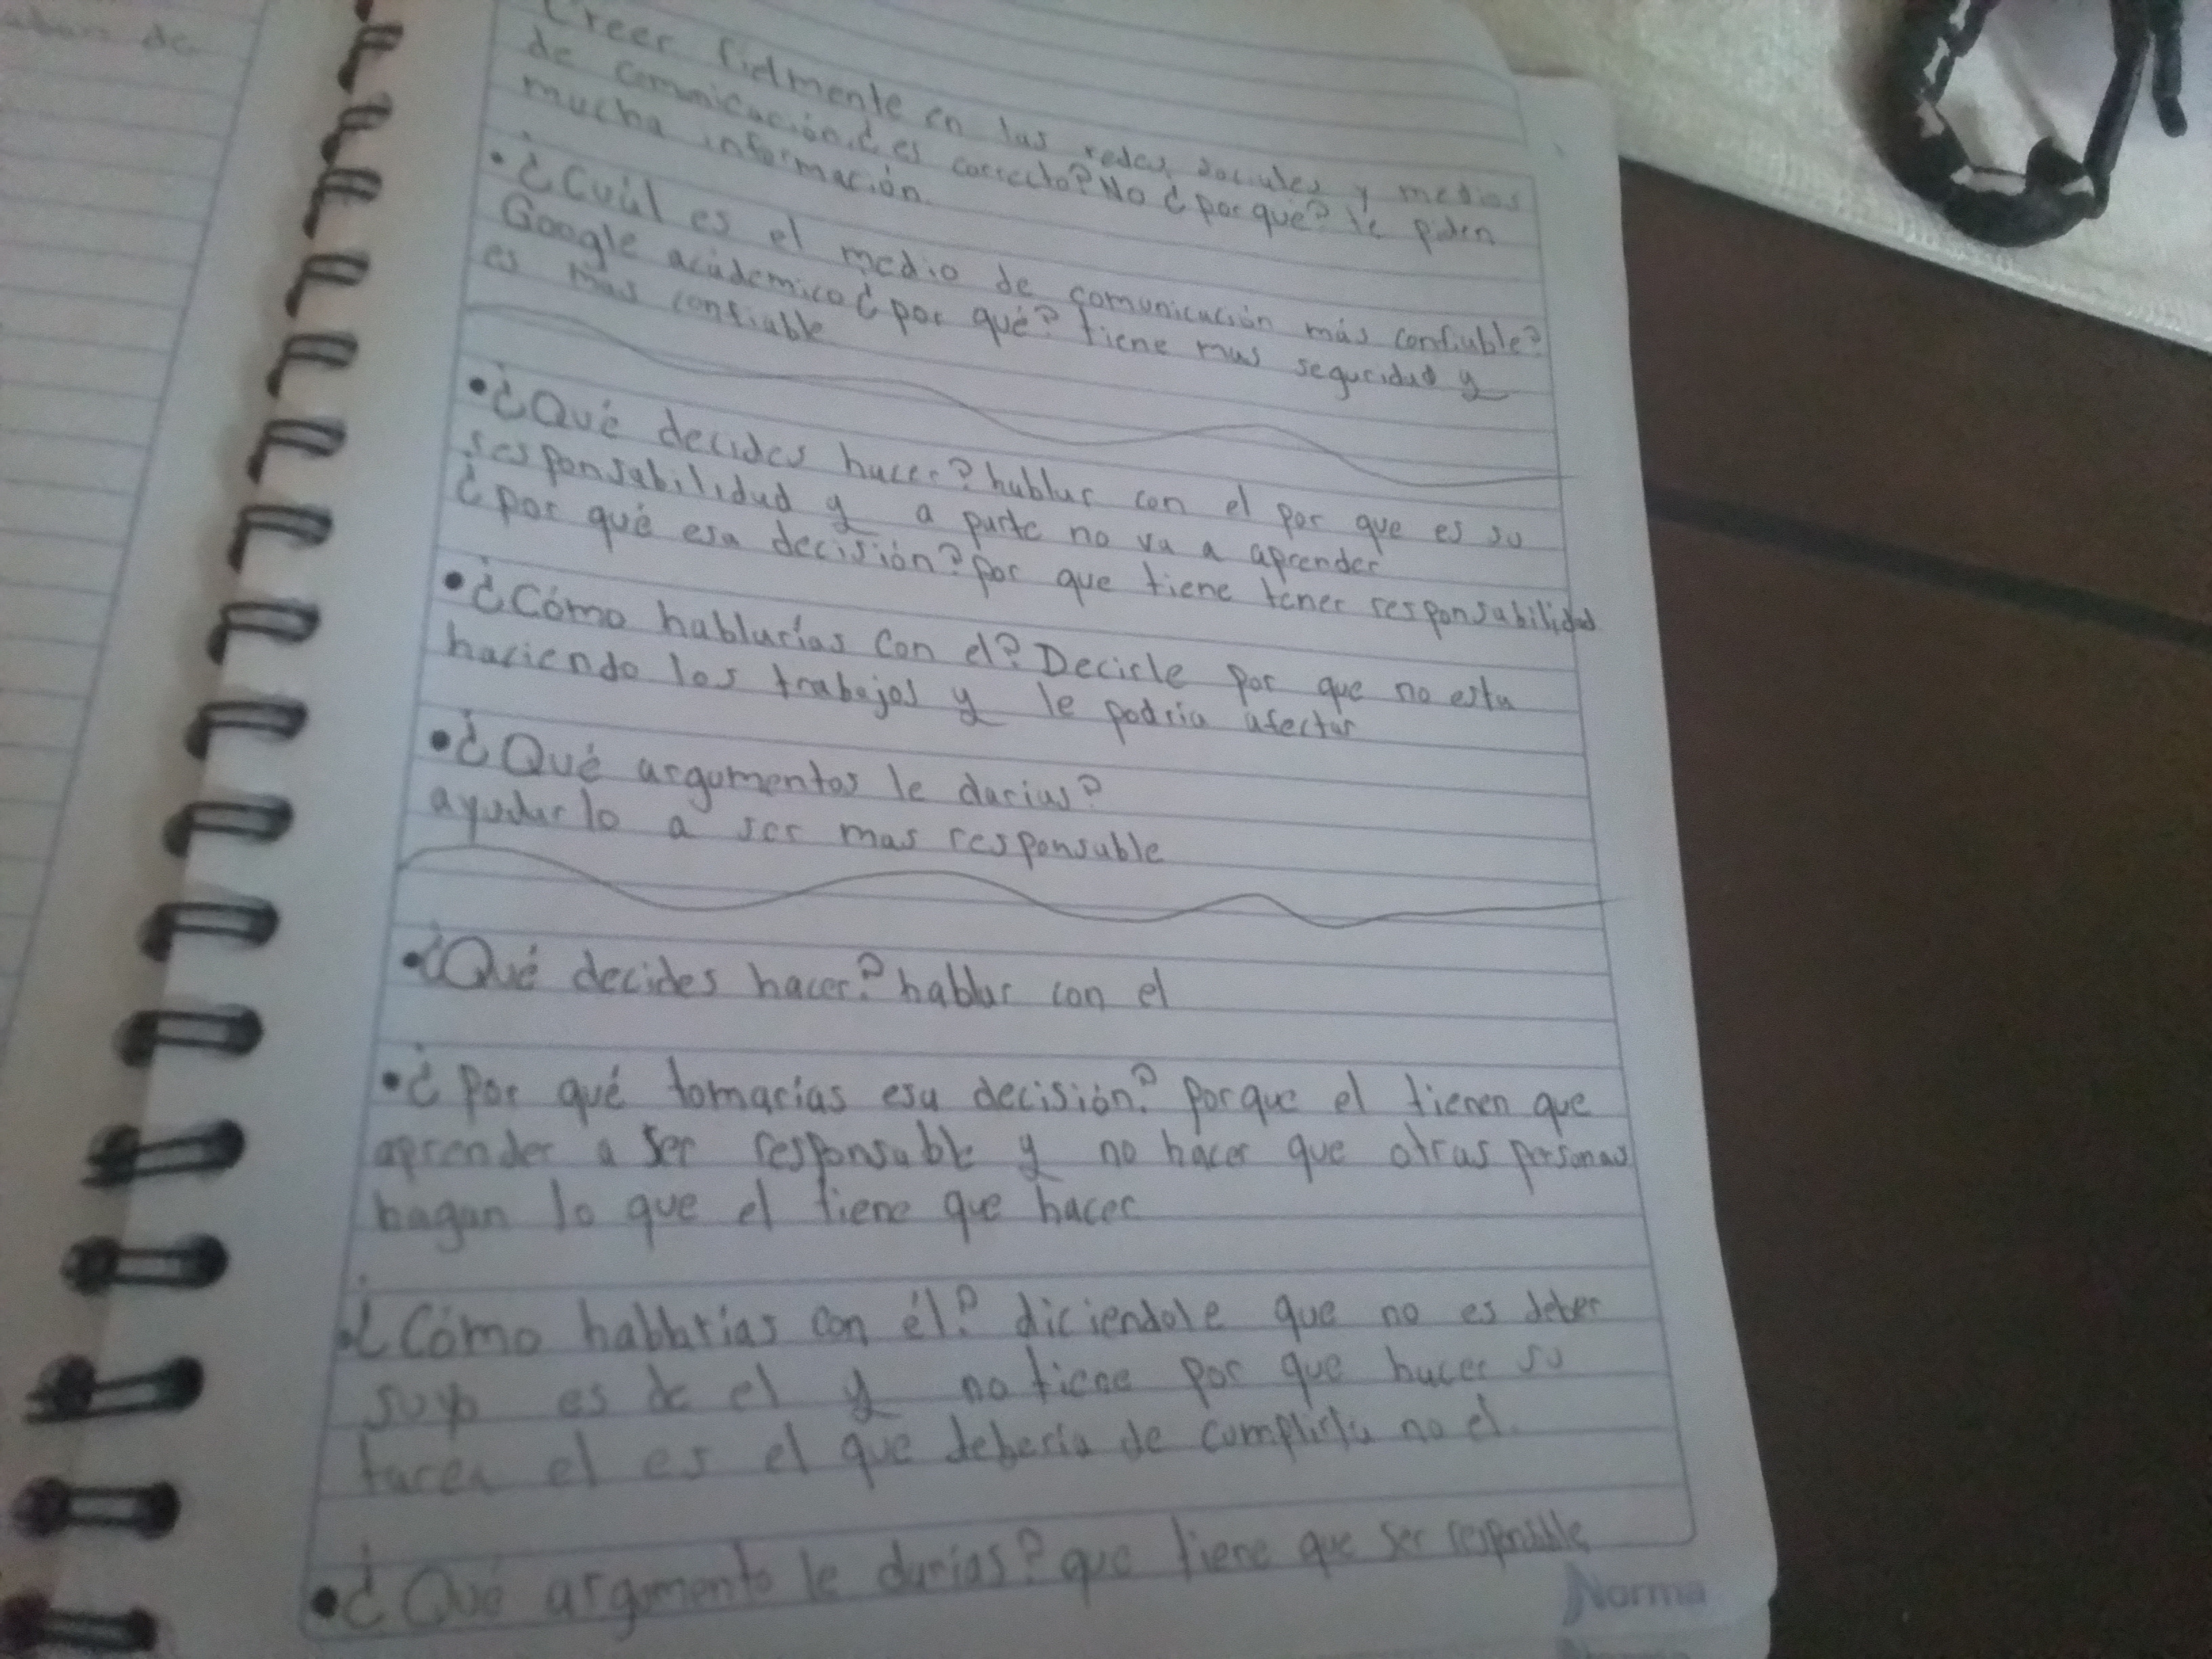 Creer fielmente en las redes sociales y medios
de comunicación ¿es correcto? No ¿por que? le piden
mucha información.
• ¿Cuál es el medio de comunicación más confiable?
Google académico ¿por qué? tiene mas seguridad y
es mas confiable
• ¿Qué decides hacer? hablar con el por que es su
responsabilidad y a parte no va a aprender
¿por qué esa decisión? por que tiene tener responsabilidad
• ¿Cómo hablarías con el? Decirle por que no esta
haciendo los trabajos y le podria afectar
• ¿Qué argumentos le darias?
ayudarlo a ser mas responsable
• ¿Qué decides hacer? hablar con el
• ¿Por qué tomarías esa decisión? Porque el tienen que
aprender a ser responsable y no hacer que otras personas
hagan lo que el tiene que hacer
• ¿Cómo hablarias con él? diciendole que no es deber
suyo es de el y no tiene por que hacer su
tarea el es el que deberia de cumplirla no el.
• ¿Qué argumento le darias? que tiene que ser responsable
Norma